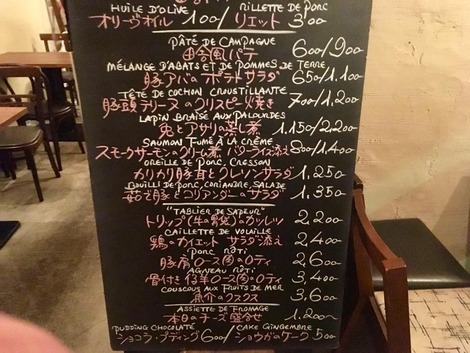 HUILE D'OLIVE RILLETTE DE PORC
オリーヴオイル 100/ リエット 300
PÂTÉ DE CAMPAGNE
田舎風パテ 600/900
MÉLANGE D'ABATS ET DE POMMES DE TERRE
豚アバのポテトサラダ 650/1,100
TÊTE DE COCHON CROUSTILLANTE
豚頭テリーヌのクリスピー焼き 700/1,200
LAPIN BRAISE AUX PALOURDES
兎とアサリの蒸し煮 1,150/2,200
SAUMON FUMÉ À LA CRÈME
スモークサーモンのクリーム煮 バターライス添え 800/1,400
OREILLE DE PORC, CRESSON
カリカリ豚耳とクレソンサラダ 1,250
BOUILLI DE PORC, CORIANDRE, SALADE
茹で豚とコリアンダーのサラダ 1,350
"TABLIER DE SAPEUR"
トリップ(牛の胃袋)のカツレツ 2,200
CAILLETTE DE VOLAILLE
鶏のカイエット サラダ添え 2,400
PORC RÔTI
豚肩ロース肉のロティ 2,600
AGNEAU RÔTI
骨付き仔羊ロース肉のロティ 3,400
COUSCOUS AUX FRUITS DE MER
魚介のクスクス 3,600
ASSIETTE DE FROMAGE
本日のチーズ盛合せ 1,200~
PUDDING CHOCOLATE CAKE GINGEMBRE
ショコラ・プディング 600/ ショウガのケーキ 500